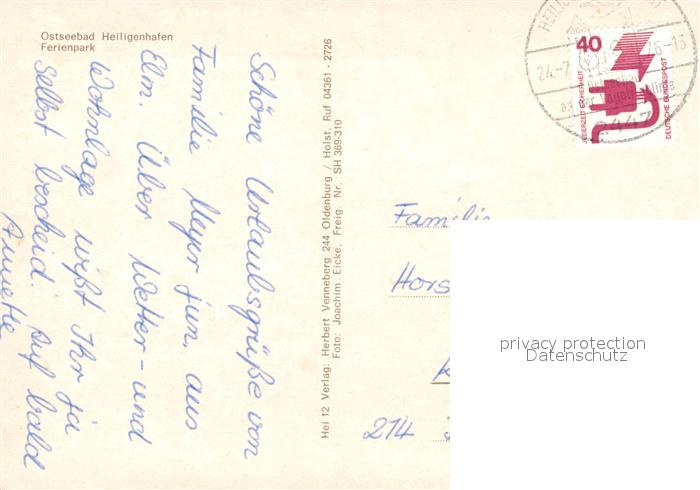 Ostseebad Heiligenhafen
Ferienpark
Schöne Urlaubsgrüße von
Familie Meyer jun. aus
Elm. Über Wetter- und
Wohnlage wißt Ihr ja
selbst bescheid. Auf bald
Annette
Hei 12 Verlag: Herbert Venneberg 244 Oldenburg / Holst. Ruf 04361 - 2726
Foto: Joachim Eicke. Freig. Nr. SH 389-310
40
JEDERZEIT SICHERHEIT
DEUTSCHE BUNDESPOST
Familie
Hors
214
privacy protection
Datenschutz